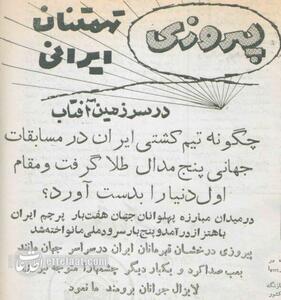 پیروزی تهمتنان
ایرانی
در سرزمین آفتاب
چگونه تیم کشتی ایران در مسابقات
جهانی پنج مدال طلا گرفت و مقام
اول دنیا را بدست آورد؟
در میدان مبارزه پهلوانان جهان هفت بار پرچم ایران
باهتزاز درآمد و پنج بار سرود ملی ما نواخته شد
پیروزی درخشان قهرمانان ایران در سراسر جهان مانند
بمب صدا کرد و یکبار دیگر چشمها را متوجه نیروی
لایزال جوانان برومند ما نمود